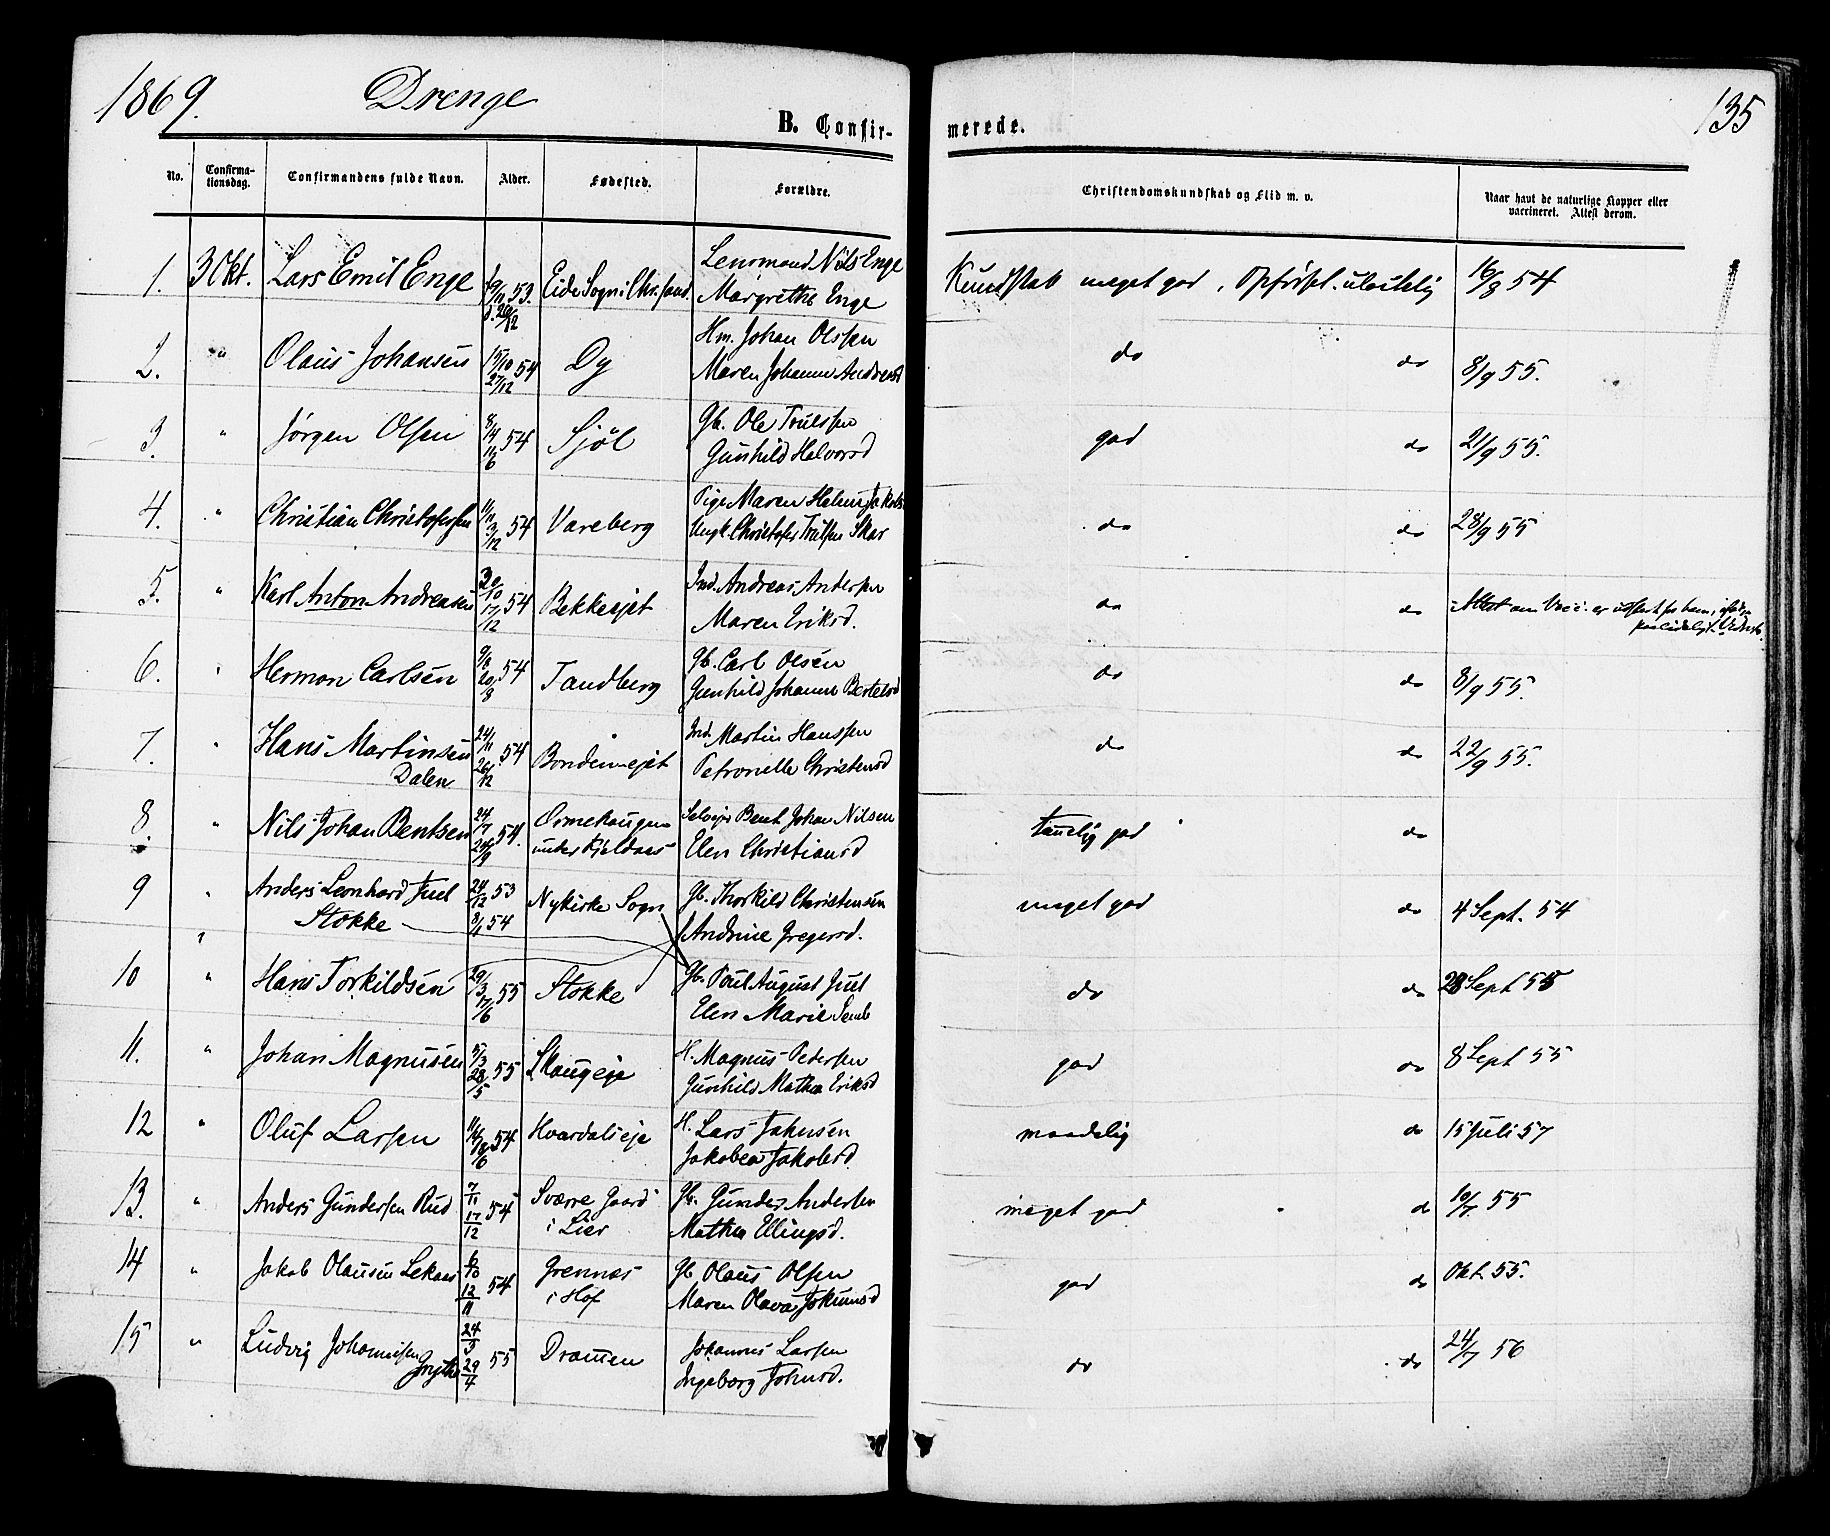 1869. Drenge 135
B. Confir- merede.
No. Confirma-tionsdag. Confirmandens fulde Navn. Alder. Fødested. Forældre. Christendomskundskab og Flid m. v. Naar havt de naturlige Kopper eller vaccineret. Attest derom.
1. 3 Okt. Lars Emil Enge 53. Eide Sogn i Chr.sand Lensmand Nils Enge Kundskab meget god, Opførsel ulastelig 16/8 54
Margrethe Enge
2. " Olaus Johansen 15/10 54 Dy Hm. Johan Olssen do do 8/9 55.
27/12 Maren Johanne Andersd
3. " Jørgen Olsen 8/4 54 Sjøl Gb. Ole Truelssen god do 21/9 55.
11/6 Gunhild Halvorsd
4. " Christian Christofersen 1/11 54 Vareberg Pige Maren Helene Jakobs. do do 28/9 55
3/12 Ungk. Christofer Trulsen Skar
5. " Karl Anton Andreasen 30/10 54 Bekkeejet Ind. Andreas Andersen do do Attest om Vacc. er udstedt for ham, ifølge
17/12 Maren Eriksd. paalideligt Vidnesb.
6. " Herman Carlsen 9/8 54 Tandberg Gb. Carl Olsen do do 8/9 55.
20/8 Gunhild Johanne Bertelsd
7. " Hans Martinsen 24/11 54 Bondeneiejet Ind. Martin Hanssen do do 22/9 55.
Dalen 26/12 Petronelle Christensd
8. " Nils Johan Bentsen 24/7 54. Ormehaugen Selvejer Bent Johan Nilsen temelig god do
24/9 under Fjeldaas Elen Christiansd
9 " Anders Leonhard Juel 24/12 53 Nykirke Sogn Gb. Thorkild Christensen meget god do 4 Sept. 54
Stokke 8/1 54 Andrine Gregersd.
10 " Hans Torkildsen 29/3 55 Stokke Gb. Poul August Juel do do 28 Sept 55
17/6 Elen Marie Semb
11. " Johan Magnusen 5/3 55 Skaugeje H. Magnus Pedersen god do 8 Sept 55
28/5 Gunhild Mathea Eriksd
12 " Oluf Larsen 11/4 54 Hvardalseje H. Lars Jakobsen maadelig do 15 Juli 57
Jakobea Jakobsd
13. " Anders Gundersen Rud 7/11 54 Sværre Gaard Gb. Gunder Andersen meget god do 19/7 55
17/12 i Lier Mathea Ellingsd.
14 " Jakob Olausen Lekaas 6/10 54 Grennes Gb. Olaus Olsen god do Okt. 55.
12/11 i Hof Maren Olava Jokumsd
15 " Ludvig Johannesen 24/3 55 Dramen Johannes Larsen do do 24/7 56
Grythe 29/4 Ingeborg Johnsd.